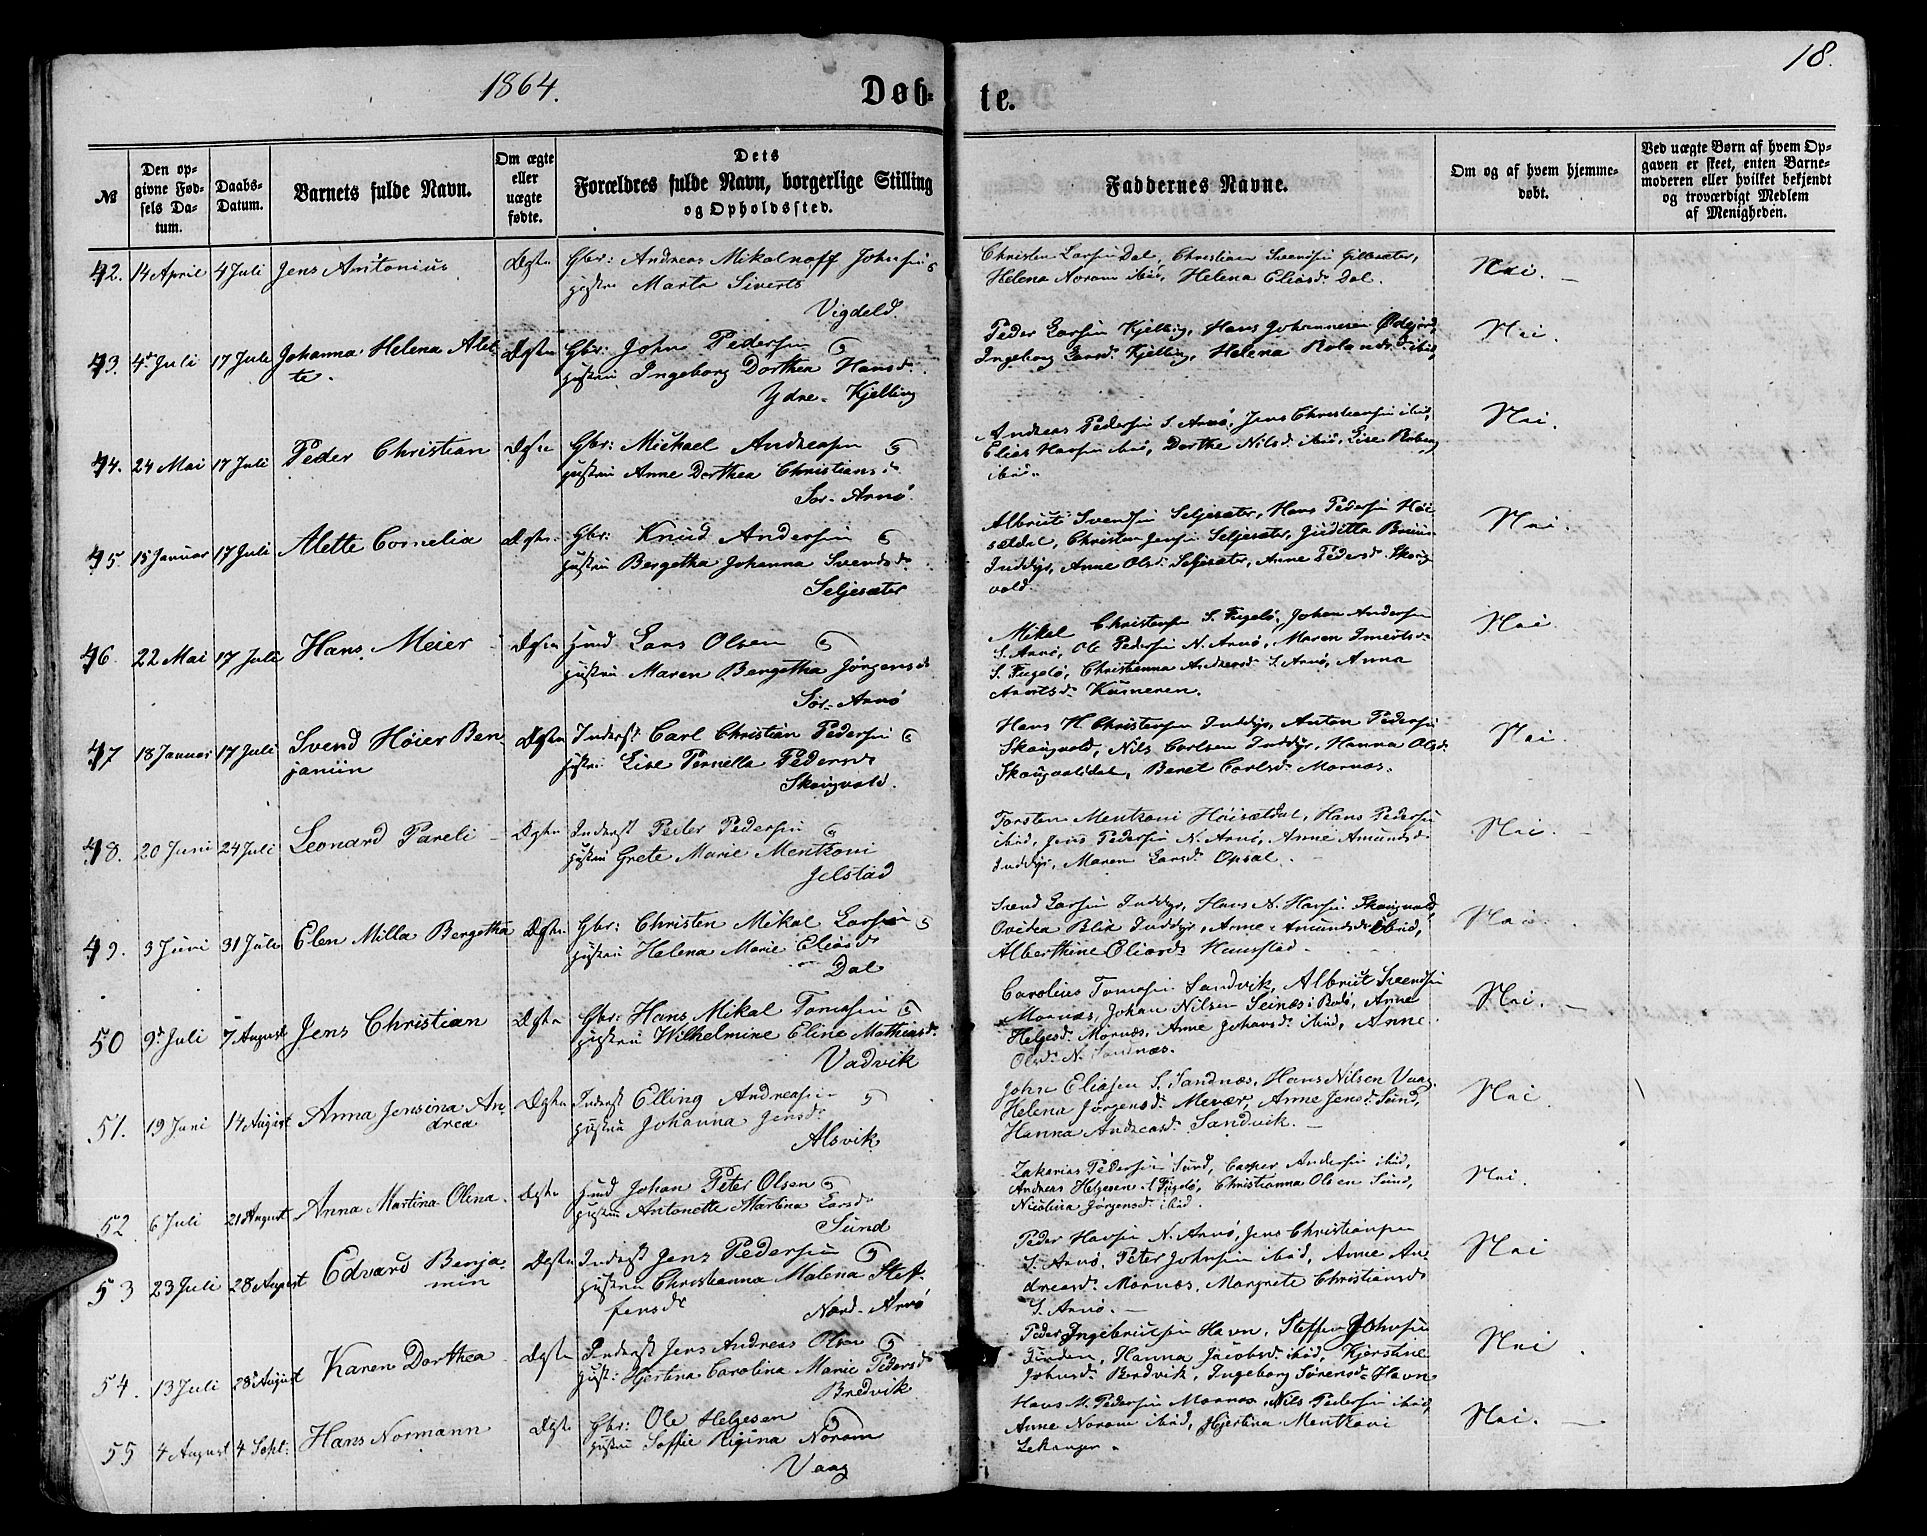 1864.
Døb-
te.
18.
№
Den op-
givne Fød-
sels Da-
tum.
Daabs-
Datum.
Barnets fulde Navn.
Om ægte
eller
uægte
fødte.
Dets
Forældres fulde Navn, borgerlige Stilling
og Opholdssted.
Faddernes Navne.
Om og af hvem hjemme-
døbt.
Ved uægte Børn af hvem Op-
gaven er skeet, enten Barne-
moderen eller hvilket bekjendt
og troværdigt Medlem
af Menigheden.
42. 14 April 4 Juli Jens Antonius Ægte Gbr: Andreas Mikalnoff Johnsen
Hustru Marta Siverts
Vigdeld.
Christen Larsen Dal, Christian Svendsen Gilesæter,
Helena Norum ibid, Helena Eliasd. Dal.
Nei.
43. 4d Juli 17 Juli Johanna Helena Alet-
te.
Ægte Gbr: John Pedersen
Hustru Ingeborg Dorthea Hansd.
Ydre- Kjelling
Peder Larsen Kjelling, Hans Johannesen Ødejord,
Ingeborg Larsd. Kjelling, Helena Rolandsd. ibid,
Nei.
44. 24 Mai 17 Juli Peder Christian Ægte Gbr: Mickael Andreasen
Hustru Anne Dorthea Christiansd.
Sør- Arnø.
Andreas Pedersen S. Arnø, Jens Christiansen ibid,
Elias Hansen ibid, Dorthe Nilsd. ibid, Lise Roberg
ibid.
Nei.
45. 15 Januar 17 Juli Alette Cornelia Ægte Gbr: Knud Andersen
Hustru Bergetha Johanna Svendsd.
Seljesæter
Albrigt Svendsen Seljesæter, Hans Pedersen Høi-
sætdal, Christen Jensen Seljesæter, Juditta Bruun
Inddyr, Anne Olsd. Seljesæter, Anne Pedersd. Skaug-
vold.
Nei.
46. 22 Mai 17 Juli Hans Meier Ægte Husmd Lars Olsen
Hustru Maren Bergetha Jørgensd.
Sør- Arnø
Mikal Christensen S. Fugelø, Johan Andersen
S. Arnø, Ole Pedersen N. Arnø, Maren Imertsd.
S. Fugelø, Christianna Andreasd. S. Arnø, Anna
Arntsd. Kunneren.
Nei.
47 18 Januar 17 Juli Svend Høier Ben-
jamin
Ægte Inderst Carl Christian Pedersen
Hustru Lise Pernella Pedersd.
Skaugvold.
Hans H. Christensen Inddyr, Anton Pedersen
Skaugvold, Nils Carlsen Inddyr, Hanna Olsd.
Skaugvoldal, Beret Carlsd. Mornæs.
Nei.
48. 20 Juni 24 Juli Leonard Pareli Ægte Inderst Peder Pedersen
Hustru Grete Marie Mentzoni
Jelstad
Torsten Mentzoni Høisætdal, Hans Pedersen
ibid, Jens Pedersen N. Arnø, Anne Amundsd.
Inddyr, Maren Larsd. Opsal.
Nei.
49. 3 Juni 31 Juli Elen Milla Bergetha Ægte Gbr: Christen Mikal Larsen
Hustru Helena Marie Eliasd.
Dal
Svend Larsen Inddyr, Hans N. Hansen Skaugvold,
Ovidea Blix Inddyr, Anne Amundsd. ibid,
Alberthine Oliard. Haugstad.
Nei.
50 9d Juli 7 August Jens Christian Ægte Gbr: Hans Mikal Tomesen
Hustru Wilhelmine Eline Mathiasd.
Vadvik
Carolius Tomesen Sandvik, Albrigt Svendsen
Mornæs, Johan Nilsen Seines i Bodø, Anne
Helgesd. Mornæs, Anne Johansd. ibid, Anne
Olsd. N. Sandnæs.
Nei.
51. 19 Juni 14 August Anna Jensina An-
drea
Ægte Inderst Elling Andreasen
Hustru Johanna Jensd.
Alsvik.
John Eliasen S. Sandnæs, Hans Nilsen Vaag.
Helena Jørgensd. Mevær, Anne Jensd. Sund,
Hanna Andreasd. Sandvik.
Nei.
52. 6 Juli 21 August Anna Martina Olena. Ægte Husmd Johan Peter Olsen
Hustru Antonette Martina Larsd.
Sund
Zakarias Pedersen Sund, Casper Andersen ibid,
Andreas Helgesen S. Fugelø, Christianna Olsen Sund,
Nicolina Jørgensd. ibid.
Nei.
53 23 Juli 28 August Edvard Benja-
min
Ægte Inderst Jens Pedersen
Hustru Christianna Malena Stef-
fensd.
Nord- Arnø
Peder Hansen N. Arnø, Jens Christiansen
S. Arnø, Peter Johnsen ibid, Anne An-
dreasd. Mornæs, Margrete Christiansd.
S. Arnø.
Nei
54. 13 Juli 28 August Karen Dorthea Ægte Inderst Jens Andreas Olsen
Hust: Hjertina Carolina Marie Pedersd.
Bredvik
Peder Ingebrigtsen Havn, Steffen Johnsen
Finden, Hanna Jacobsd. ibid, Kjerstine
Johnsd. Bredvik, Ingeborg Sørensd. Havn
Nei
55 4 August 4 Sept: Hans Normann Ægte Gbr: Ole Helgesen
Hustru Soffie Rigina Norum
Vaag
Hans M. Pedersen Mornæs, Nils Pedersen ibid,
Anne Norum ibid, Hjertina Mentzoni
Lekanger.
Nei.